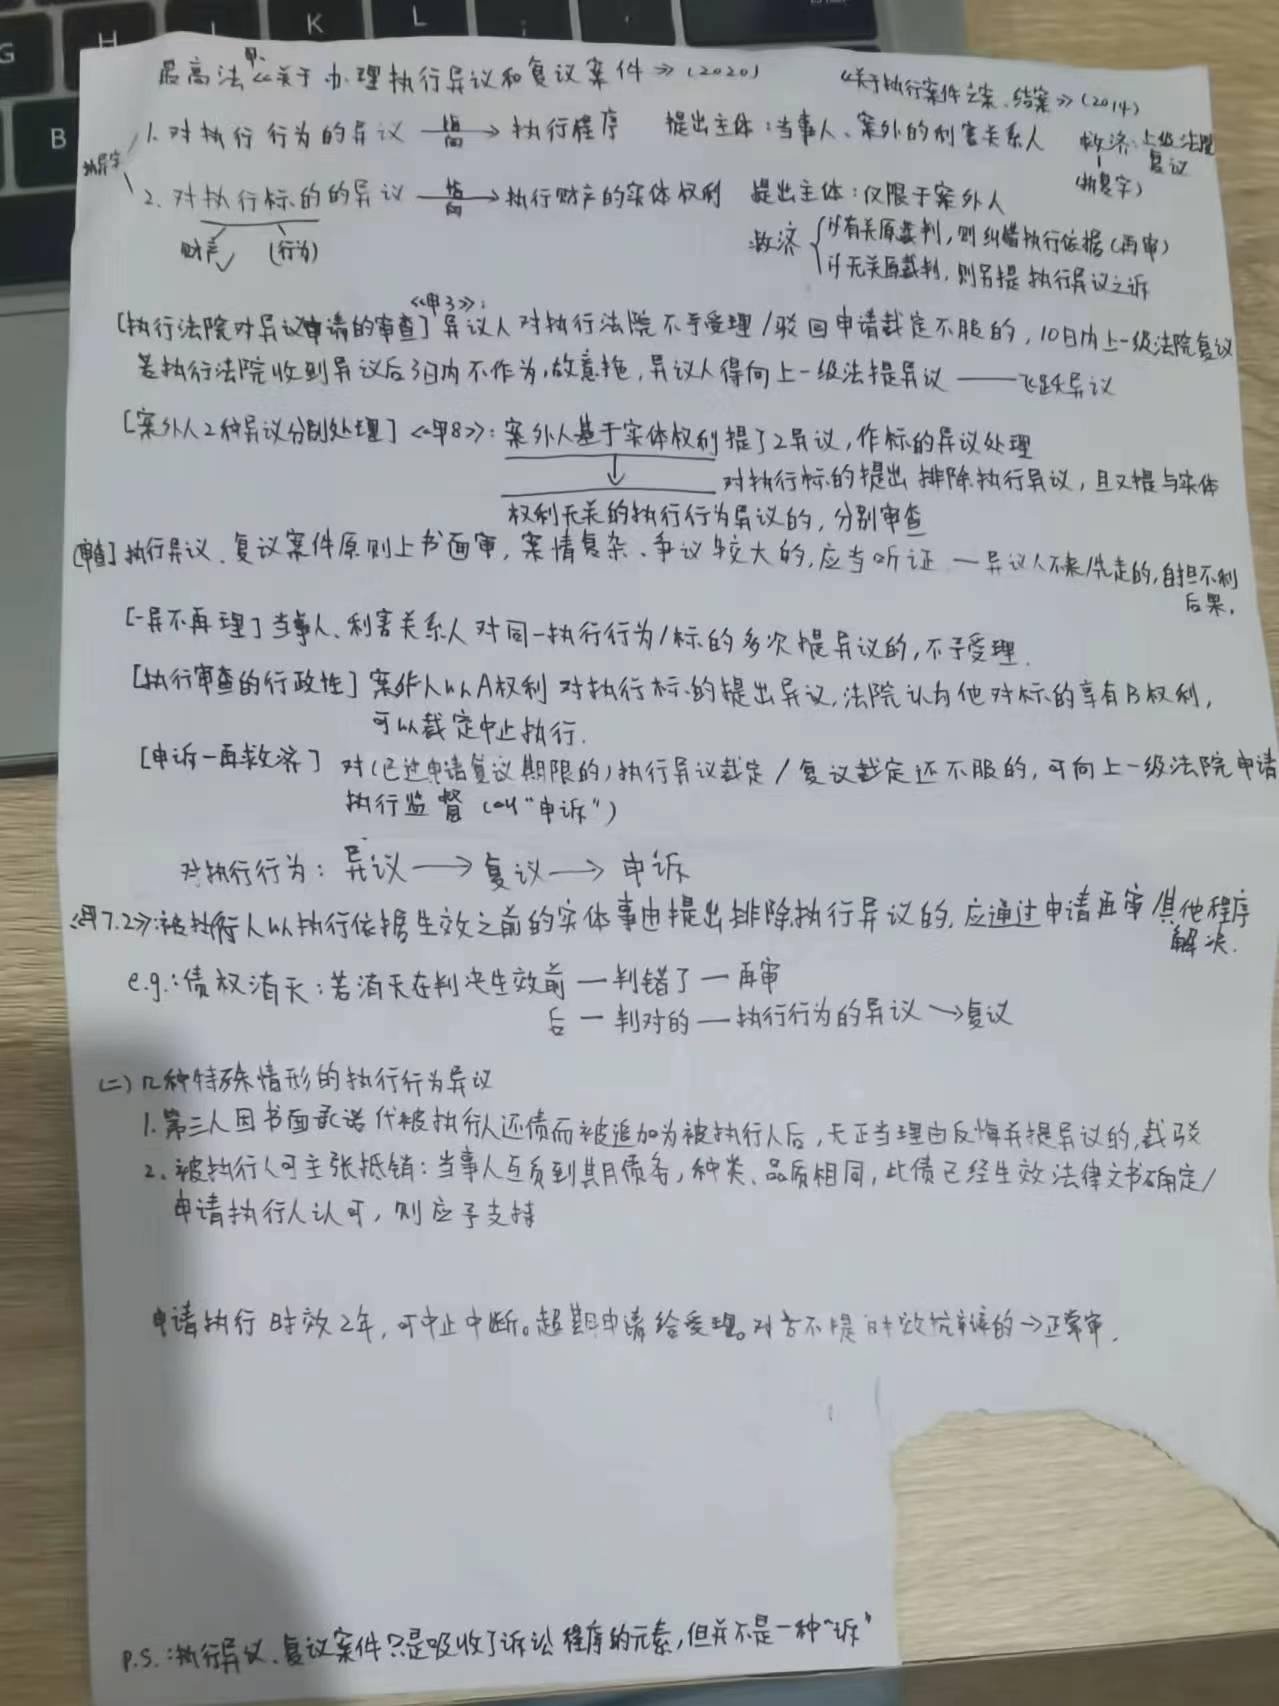 G H J K L ; B
甲、
最高法《关于办理执行异议和复议案件》(2020) 《关于执行案件立案、结案》(2014)
1. 对执行行为的异议 指向→ 执行程序 提出主体：当事人、案外的利害关系人 救济：上级法院复议
执异字 (执复字)
2. 对执行标的的异议 指向→ 执行财产的实体权利 提出主体：仅限于案外人
财产✓ (行为) 救济 { if有关原裁判，则纠错执行依据(再审)
if无关原裁判，则另提执行异议之诉
《甲3》：
[执行法院对异议申请的审查] 异议人对执行法院不予受理/驳回申请裁定不服的，10日内上一级法院复议
若执行法院收到异议后3日内不作为，故意拖，异议人得向上一级法提异议 ——飞跃异议
[案外人2种异议分别处理]《甲8》：案外人基于实体权利提了2异议，作标的异议处理
↓ 对执行标的提出排除执行异议，且又提与实体
权利无关的执行行为异议的，分别审查
[审查] 执行异议、复议案件原则上书面审，案情复杂、争议较大的，应当听证 — 异议人不来/先走的，自担不利
后果.
[一异不再理] 当事人、利害关系人对同一执行行为/标的多次提异议的，不予受理.
[执行审查的行政性] 案外人以A权利对执行标的提出异议，法院认为他对标的享有B权利，
可以裁定中止执行.
[申诉—再救济] 对(已过申请复议期限的)执行异议裁定/复议裁定还不服的，可向上一级法院申请
执行监督 (叫“申诉”)
对执行行为：异议 → 复议 → 申诉
《甲7.2》：被执行人以执行依据生效之前的实体事由提出排除执行异议的，应通过申请再审/其他程序
解决.
e.g.：债权消灭：若消灭在判决生效前 — 判错了 — 再审
后 — 判对的 — 执行行为的异议 → 复议
(二) 几种特殊情形的执行行为异议
1. 第三人因书面承诺代被执行人还债而被追加为被执行人后，无正当理由反悔并提异议的，裁驳
2. 被执行人可主张抵销：当事人互负到期债务，种类、品质相同，此债已经生效法律文书确定/
申请执行人认可，则应予支持
申请执行时效2年，可中止中断。超期申请给受理。对方不提时效抗辩的→正常审.
P.S.：执行异议、复议案件只是吸收了诉讼程序的元素，但并不是一种“诉”